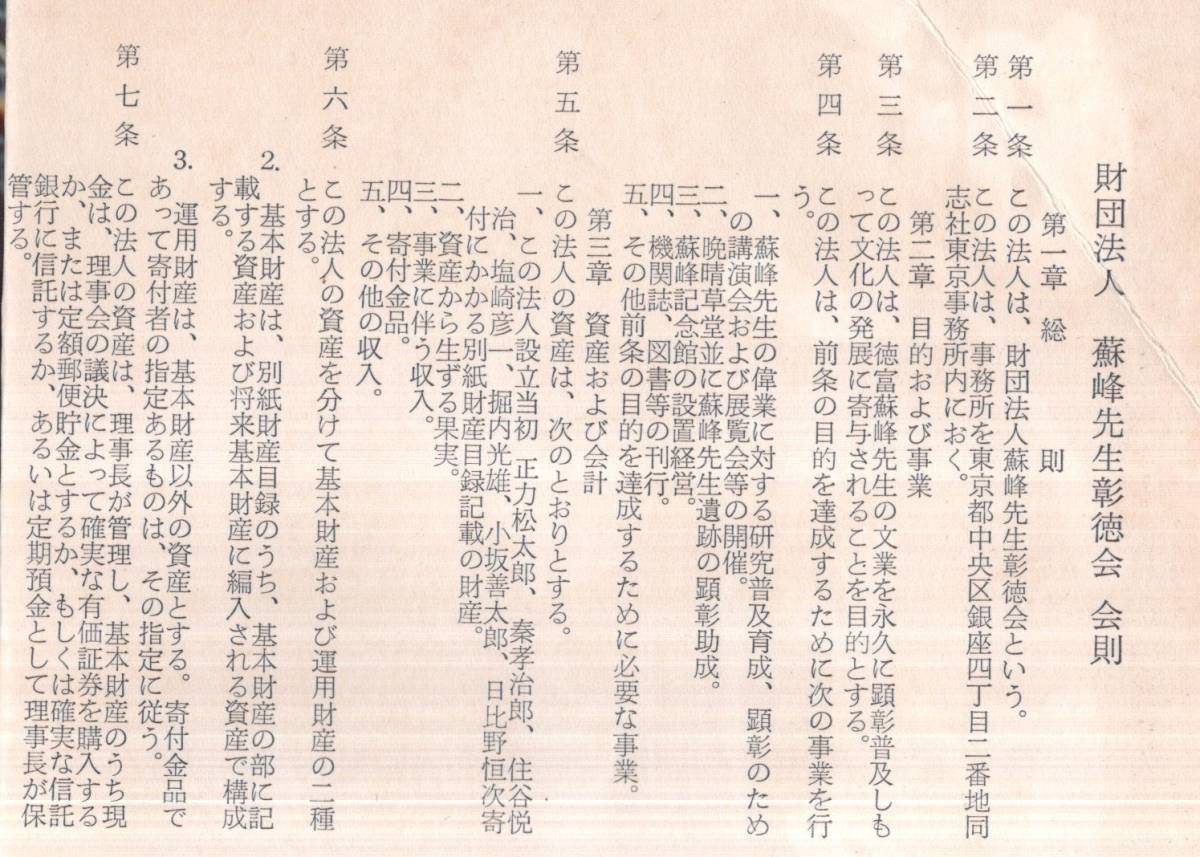 財団法人　蘇峰先生彰徳会　会則
第一章　総　　則
第一条　この法人は、財団法人蘇峰先生彰徳会という。
第二条　この法人は、事務所を東京都中央区銀座四丁目二番地同
志社東京事務所内におく。
第二章　目的および事業
第三条　この法人は、徳富蘇峰先生の文業を永久に顕彰普及しも
って文化の発展に寄与されることを目的とする。
第四条　この法人は、前条の目的を達成するために次の事業を行
う。
一、蘇峰先生の偉業に対する研究普及育成、顕彰のため
の講演会および展覧会等の開催。
二、晩晴草堂並に蘇峰先生遺跡の顕彰助成。
三、蘇峰記念館の設置経営。
四、機関誌、図書等の刊行。
五、その他前条の目的を達成するために必要な事業。
第三章　資産および会計
第五条　この法人の資産は、次のとおりとする。
一、この法人設立当初　正力松太郎、秦孝治郎、住谷悦
治、塩崎彦一、掘内光雄、小坂善太郎、日比野恒次寄
付にかかる別紙財産目録記載の財産。
二、資産から生ずる果実。
三、事業に伴う収入。
四、寄付金品。
五、その他の収入。
第六条　この法人の資産を分けて基本財産および運用財産の二種
とする。
2.　基本財産は、別紙財産目録のうち、基本財産の部に記
載する資産および将来基本財産に編入される資産で構成
する。
3.　運用財産は、基本財産以外の資産とする。寄付金品で
あって寄付者の指定あるものは、その指定に従う。
第七条　この法人の資産は、理事長が管理し、基本財産のうち現
金は、理事会の議決によって確実な有価証券を購入する
か、または定額郵便貯金とするか、もしくは確実な信託
銀行に信託するか、あるいは定期預金として理事長が保
管する。